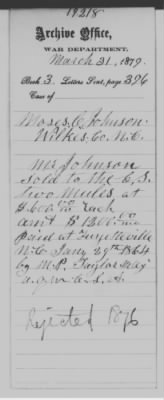 19218
Archive Office,
WAR DEPARTMENT,
March 31, 1879.
Book 3. Letters Sent, page 396
Case of
Moses C Johnson
Wilkes Co. N.C.
Mr Johnson
sold to the C. S.
two Mules at
$600.00 Each
amt $1200.00
Paid at Fayetteville
N.C. Jany 29th 1864
by M.P. Taylor Maj
Rejected 1876